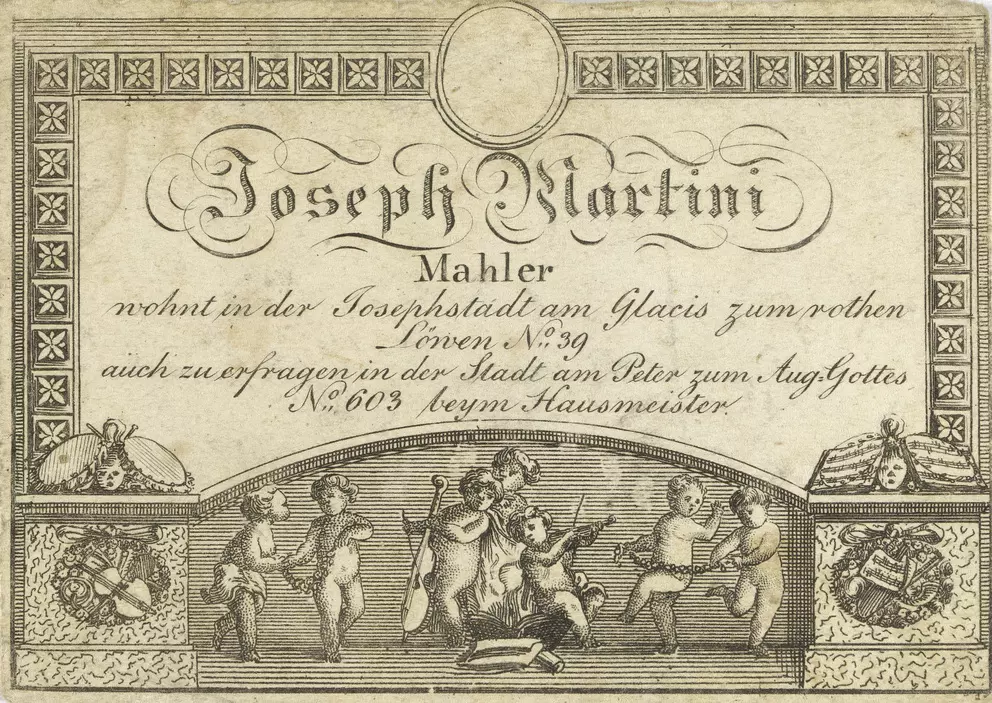 Joseph Martini
Mahler
wohnt in der Josephstadt am Glacis zum rothen
Löwen No. 39
auch zu erfragen in der Stadt am Peter zum Aug=Gottes
No. 603 beym Hausmeister.